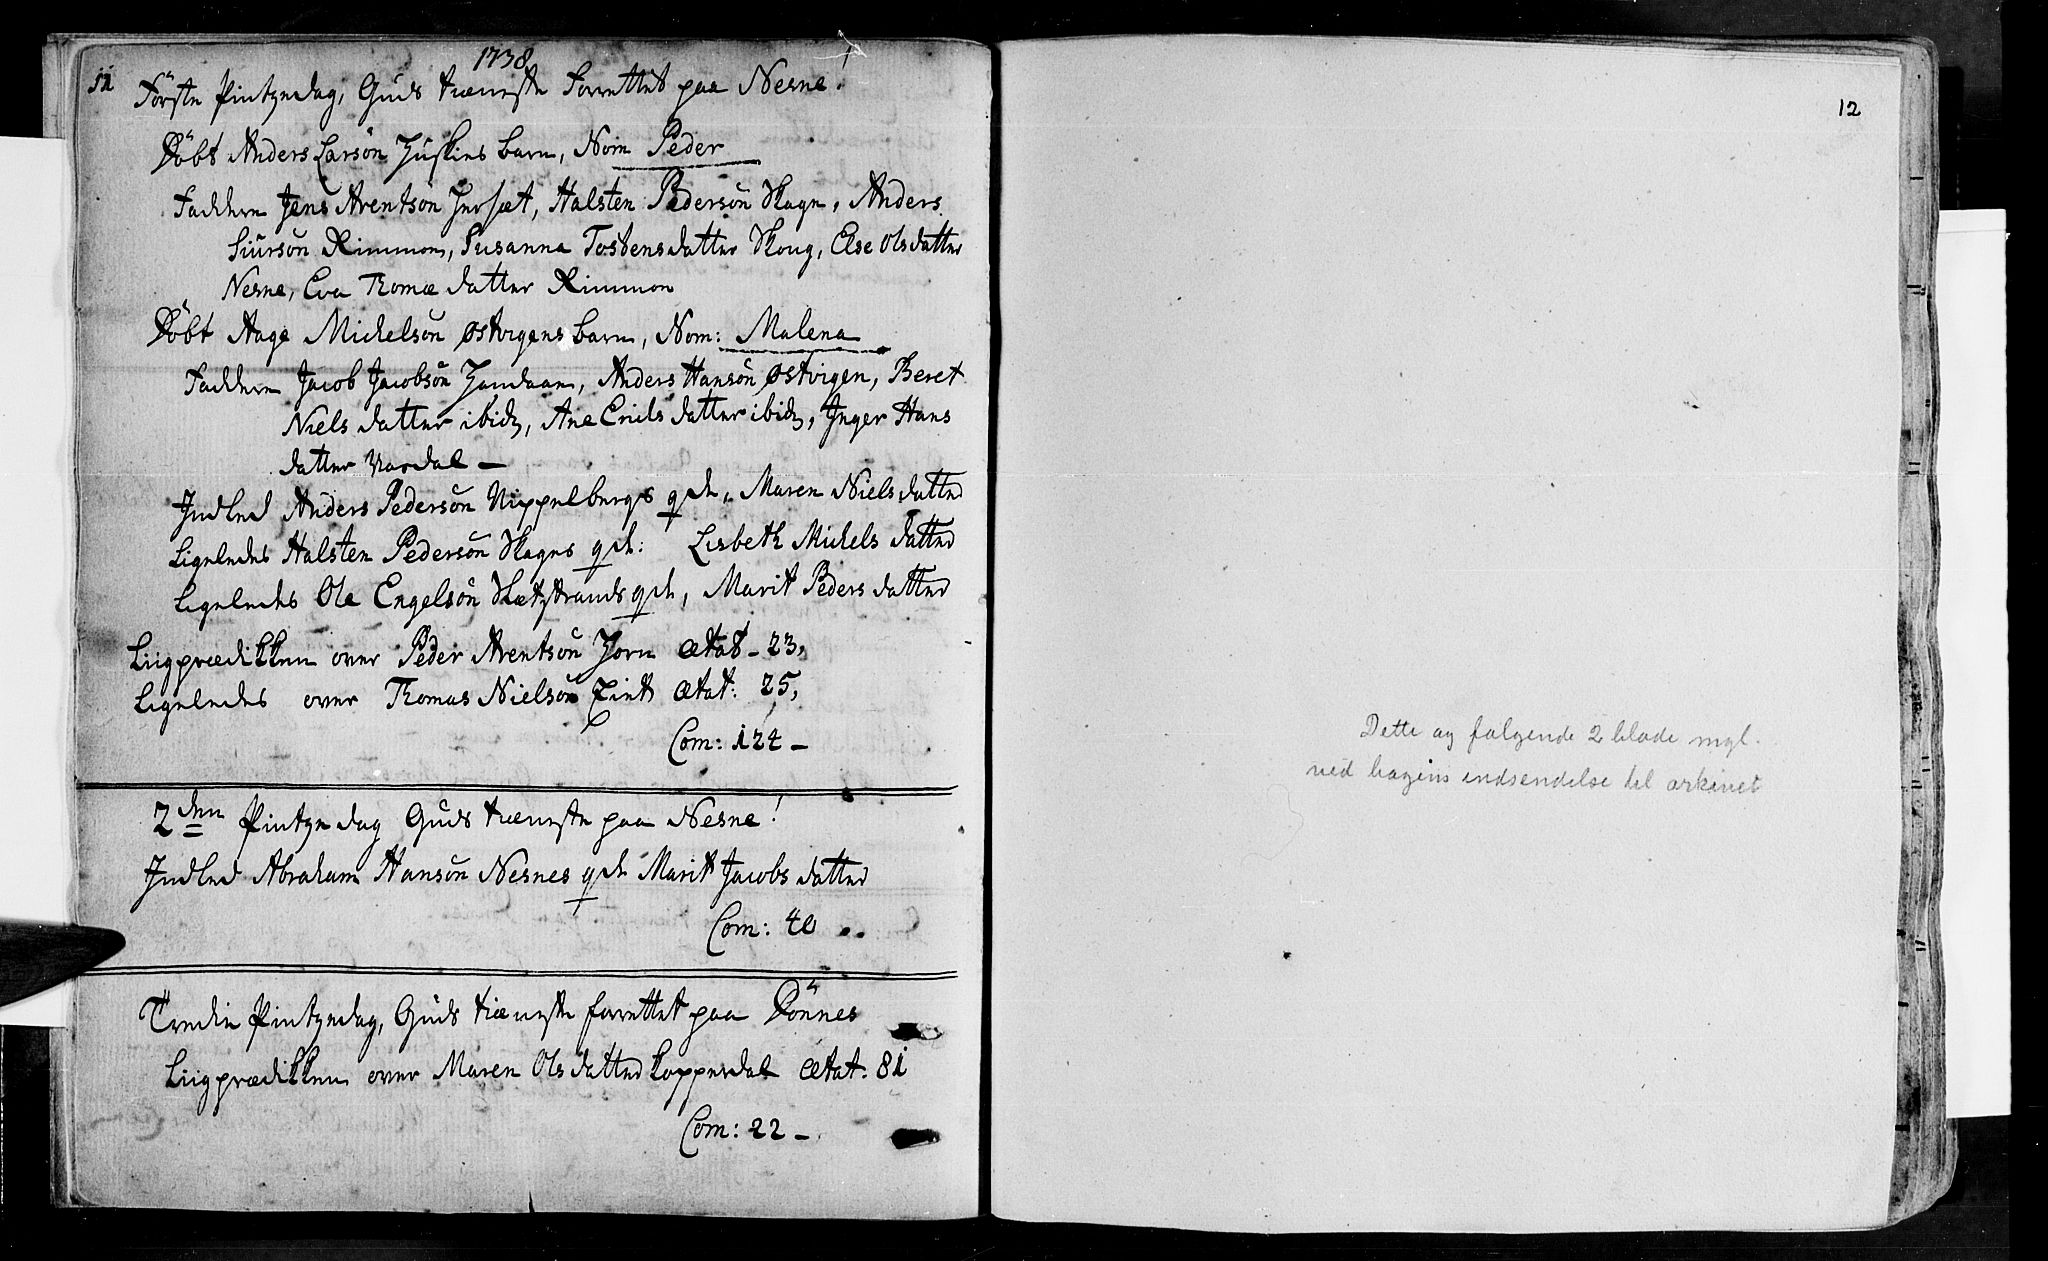 1738
Förste Pintzedag, Guds tieneste forrettet paa Nesne!
Döbt Anders Larsön Husbies barn, Nom Peder
Faddere Jens Arentsön Inersæt, Halsten Pedersön Skage, Anders
Siursön Rimmon, Susanna Tostensdatter Skoug, Else Olsdatter
Nesne, Eva Thomædatter Rimmon
Döbt Aage Michelsön Østvigens barn, Nom: Malena
Faddere Jacob Jacobsön Handaae, Anders Hansön Østvigen, Beret
Niels datter ibid, Ane Erichs datter ibid, Inger Hans
datter Vardal –
Indled Anders Pedersön Nippelbergs qde, Maren Niels datter
Ligeledes Halsten Pedersön Skages qde: Lisbeth Michels datter
Ligeledes Ole Engelsön Sletstrands qde, Marit Peders datter
Liigprædikken over Peder Arentsön Horn ætat – 23,
Ligeledes over Thomas Nielsön Zint ætat: 25,
Com: 124 –
2den Pintzedag Guds tieneste paa Nesne!
Indled Abraham Hansön Nesnes qde Marit Jacobs datter
Com: 40
Tredie Pintzedag, Guds tieneste forrettet paa Dönnes
Liigprædikken over Maren Olsdatter Kopperdal ætat. 81
Com: 22 –
12
Dette og følgende 2 blade mgl.
ved bogens indsendelse til arkivet